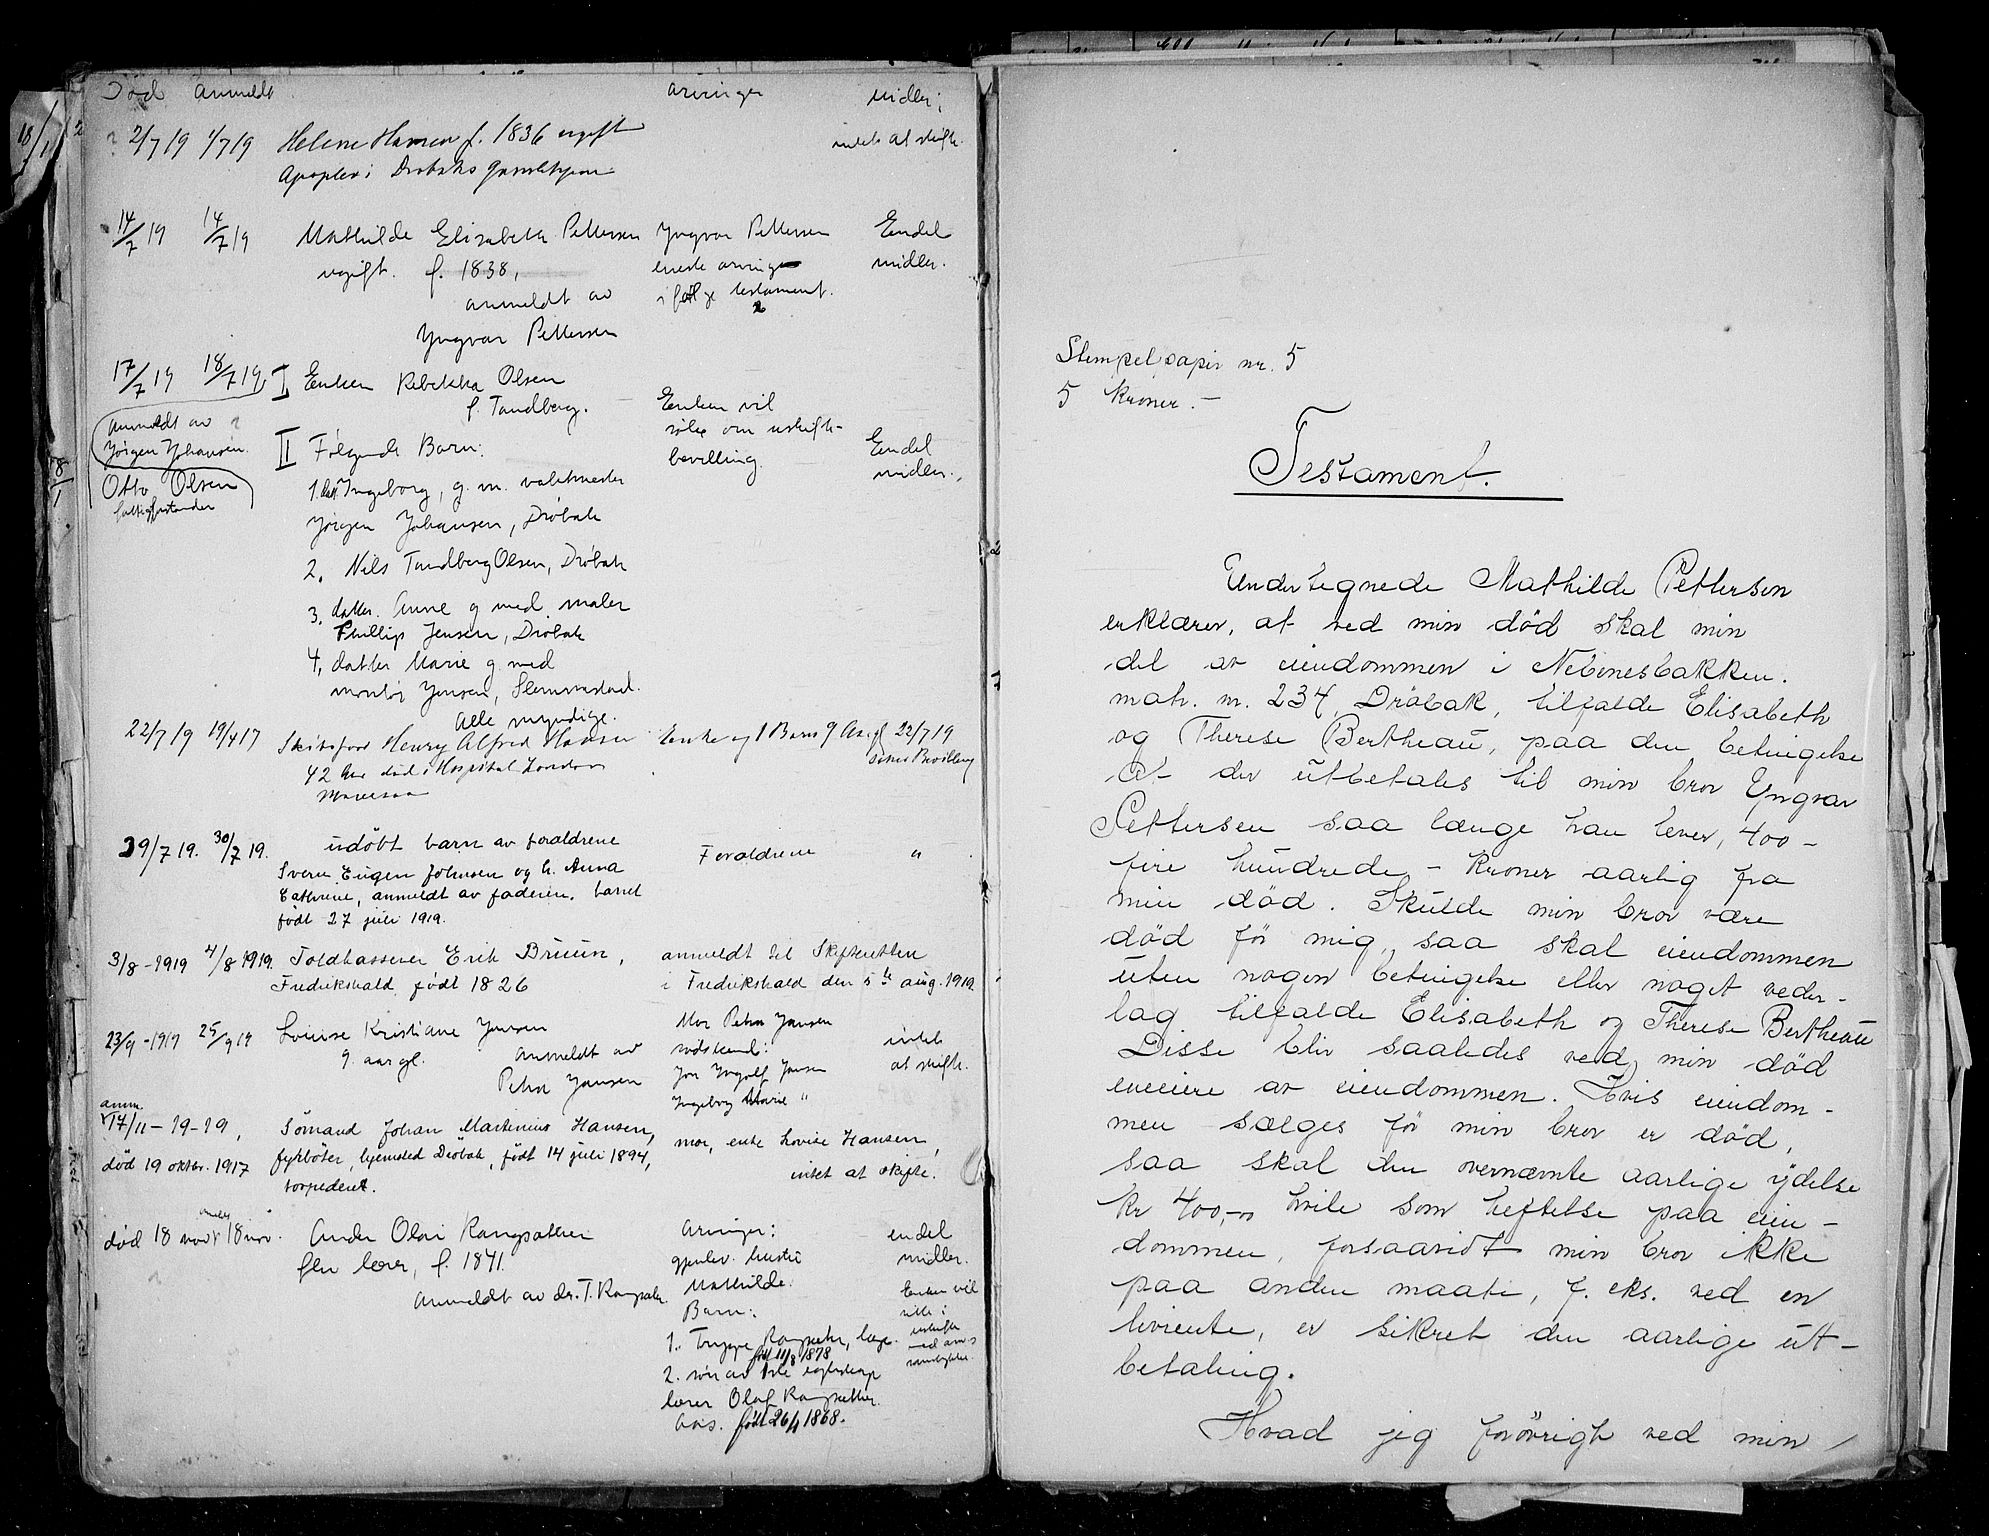 Död Anmeldt arvinger midler:
2/7 19 4/7 19 Helene Hansen f. 1836 ugift intet at skifte.
Apoplexi Drøbaks Gamlehjem
14/7 19 14/7 19 Mathilde Elisabeth Pettersen Yngvar Pettersen Endel
ugift. f. 1838, eneste arving midler.
anmeldt av i følge testament.
Yngvar Pettersen
17/7 19 18/7 19, I Enken Rebekka Olsen
f. Tandberg. Enken vil
Anmeldt av søke om uskifte-
Jørgen Johansen. II Følgende Barn: bevilling. Endel
midler.
Otto Olsen 1. dat. Ingeborg, g. m.
fattigforstander Jørgen Johansen, Drøbak
2. Nils Tandberg Olsen, Drøbak
3. datter Anne g med maler
Phillip Jensen, Drøbak
4, datter Marie g. med
Jensen, Slemmestad.
Alle myndige.
22/7 19 19/4 17 Skibsfører Henry Alfred Hansen Enke og 1 Barn 9 Aar gl 22/7 19
42 Aar død i Hospital London
29/7 19. 30/7 19. udöbt barn av foraldrene Foraldrene "
Sverre Eugen Johnsen og h. Anna
Cathrine, anmeldt av faderen. barnet
födt 27 juli 1919.
3/8 - 1919 4/8 1919. Toldkasserer Erik Bruun, anmeldt til Skifteretten
Fredrikshald, født 1826 i Fredrikshald den 5te aug. 1919.
23/9 - 1919 25/9 19 Louise Kristiane Jensen Mor Petra Jansen
9 aar gl. Anmeldt av södskend: intet
Petra Jansen Jon Ingolf Jansen at skifte.
Ingeborg Marie "
anm.
17/11 - 19-19, Sömand Johan Martinius Hansen, mor, enke Lovise Hansen,
död 19 oktbr. 1917 fyrböter, hjemsted Dröbak, födt 14 juli 1894, intet at skifte.
torpederet.
död 18 novbr 18 nov. f. 1841. Arvinger: endel
gjenlev. hustru midler.
Anmeldt av dr. T. Mathilde. Enken vil
Barn: sitte i
1. Trygve, læge. uskifte
født 11/8 1878
2. sön av 1ste egteskap
lærer Olaf
Aas. født 26/4 1868.
Stempelpapir nr. 5
5 Kroner. -
Testament.
Undertegnede Mathilde Pettersen
erklærer, at ved min död skal min
del av eiendommen i Nebenesbakken.
matr. nr. 234, Dröbak, tilfalde Elisabeth
og Therese Bertheau, paa den betingelse
at der utbetales til min bror Yngvar
Pettersen saa længe han lever, 400 -
fire hundrede - Kroner aarlig fra
min död. Skulde min bror være
död för mig, saa skal eiendommen
uten nogen betingelse eller noget veder-
lag tilfalde Elisabeth og Therese Bertheau
Disse blir saaledes ved min död
eneeiere av eiendommen. Hvis eiendom-
men sælges för min bror er död,
saa skal den overnævnte aarlige ydelse
kr 400,- hvile som heftelse paa eien-
dommen, forsaavidt min bror ikke
paa anden maate, f. eks. ved en
livrente, er sikret den aarlige ut-
betaling.
Hvad jeg forövrigt ved min